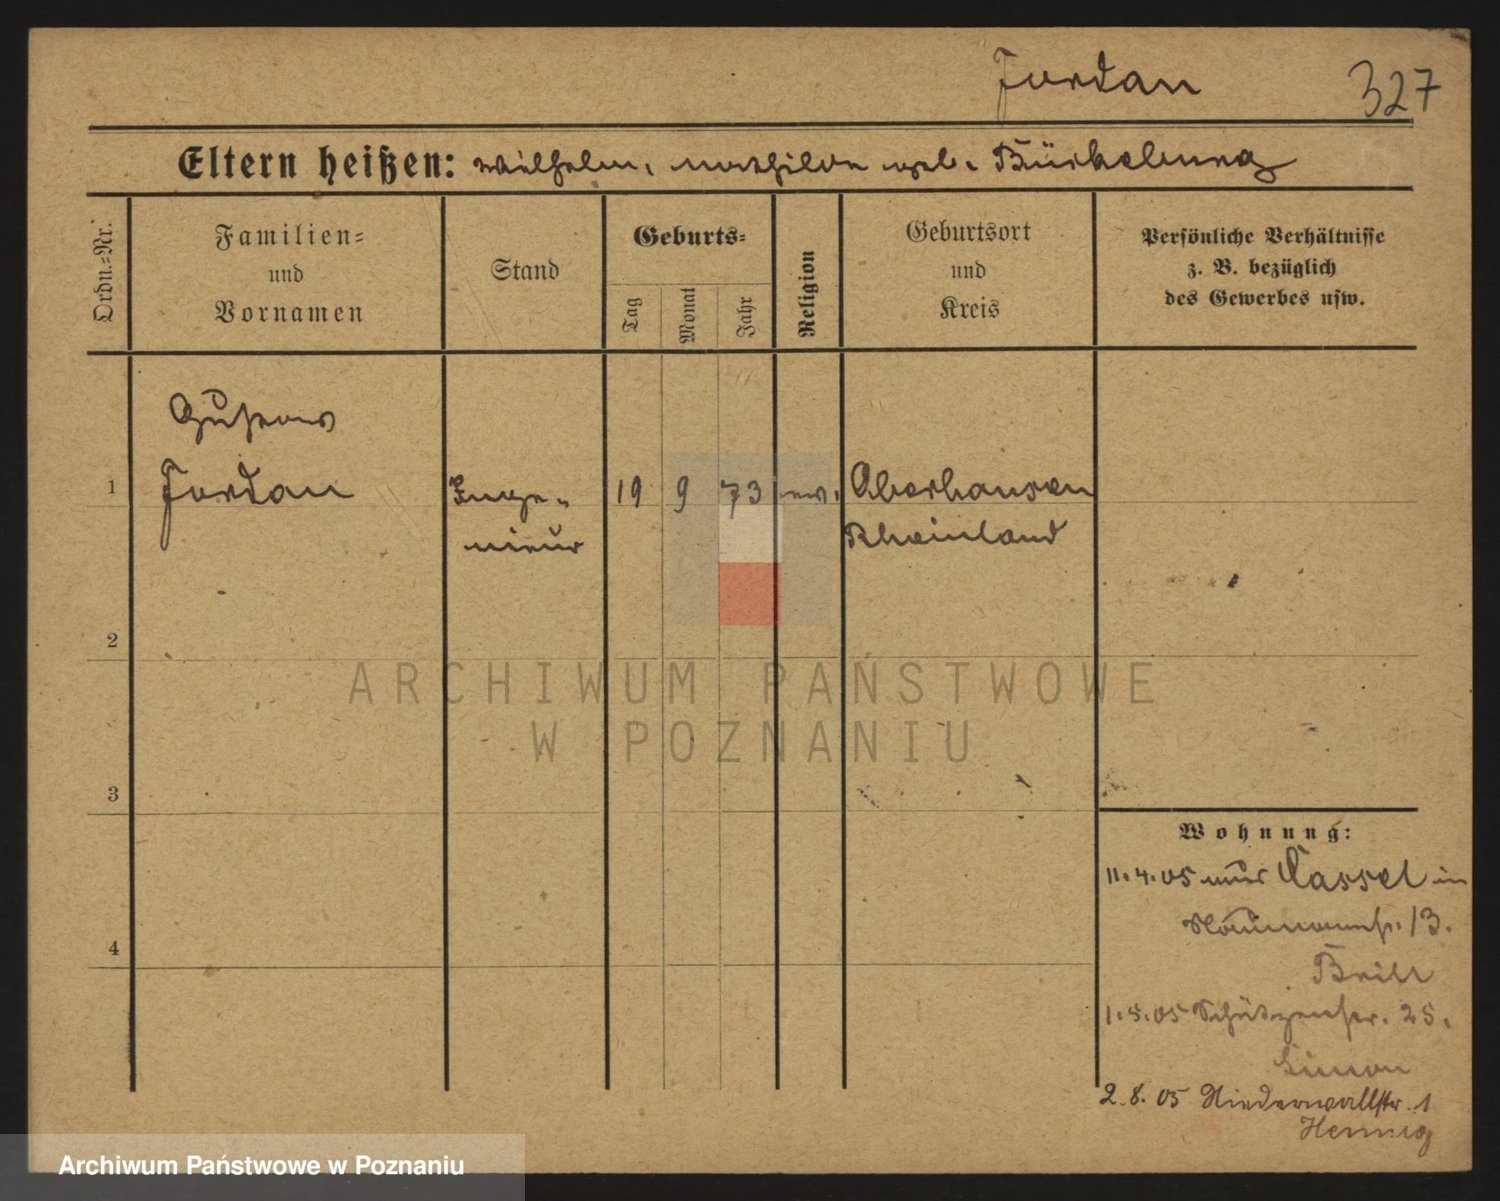 Jordan
327
Eltern heißen: Wilhelm, Mathilde geb.
Ordn.-Nr.
Familien-
und
Vornamen
Stand
Geburts-
Tag
Monat
Jahr
Religion
Geburtsort
und
Kreis
Persönliche Verhältnisse
z. B. bezüglich
des Gewerbes usw.
Gustav
1 Jordan Inge- 19 9 73 ev. Oberhausen
nieur Rheinland
2
ARCHIWUM PAŃSTWOWE
W POZNANIU
3
Wohnung:
11.4.05 aus Cassel in
Naumannstr. 13.
Brill
4
1.5.05 Schützenstr. 25.
Simon
2.8.05 Niederwallstr. 1
Hennig
Archiwum Państwowe w Poznaniu